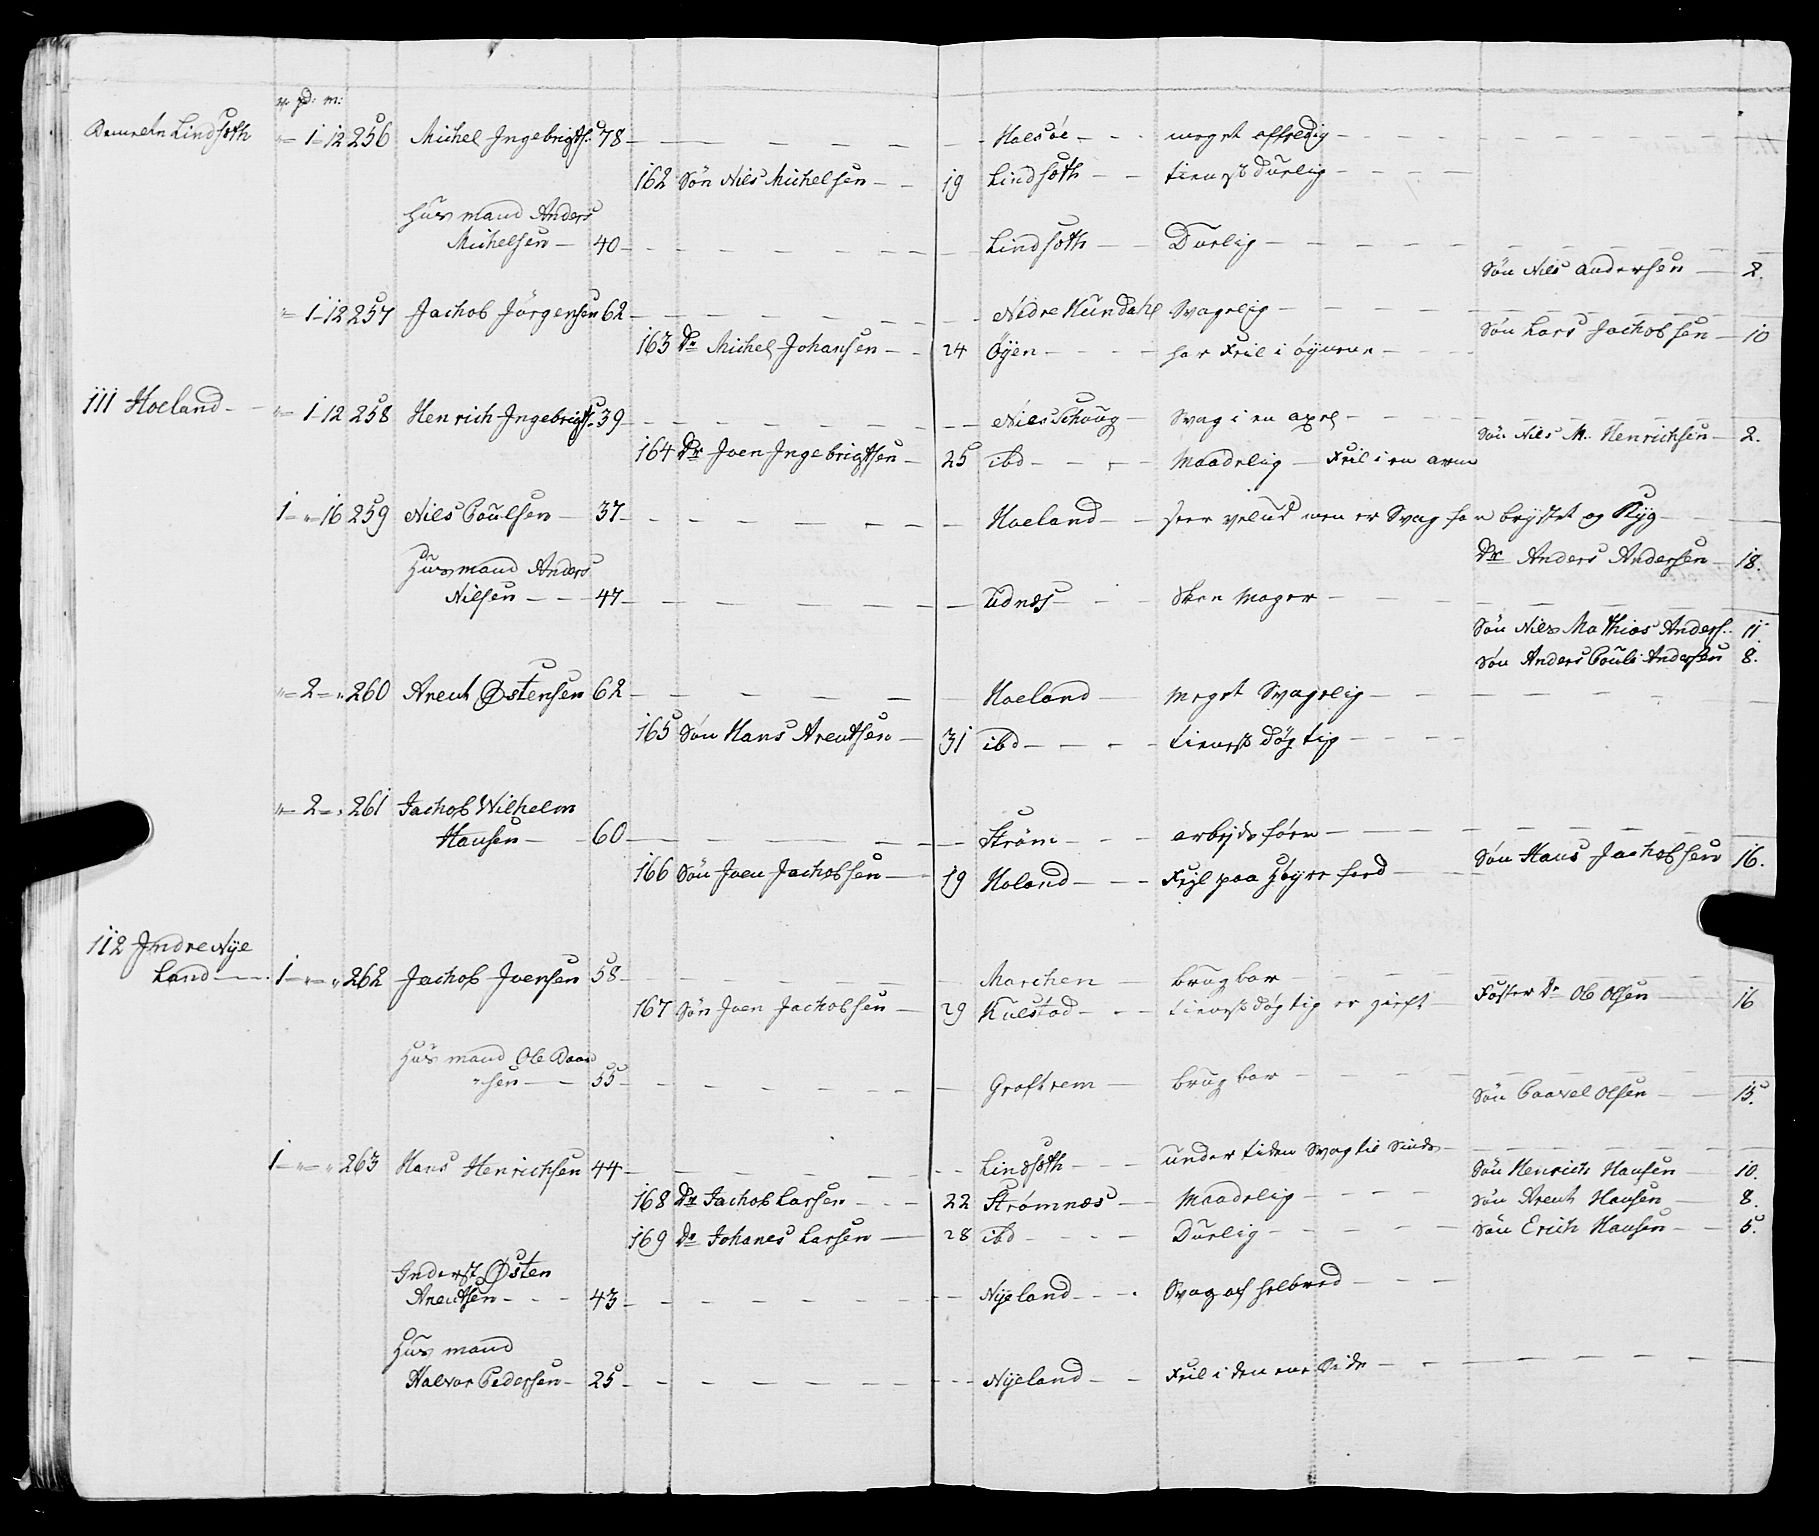 v. pd: m:
Lindsøth " 1 12 256 Michel Ingebrigts. 78 — Halsøe — meget affeldig
162 Søn Nils Michelsen — 19 Lindsøth — tienst Durlig
Huus mand Anders
Michelsen — 40 — Lindsøth — Durlig
Søn Nils Andersen — 2.
" 1 12 257 Jachob Jörgensen 62 — Nedre Kundahl Svagelig
Søn Lars Jachobsen — 10
163 Dr Michel Johansen — 24 Öyen — har Feil i öynene
111 Hoeland — " 1 12 258 Henrich Ingebrigts. 39 — Niels Schoug — Svag i en axel
Søn Nils M. Henrichsen — 2.
164 Dr Joen Ingebrigtsen — 25 ibd — Maadelig — Feil i en arm
1 " 16 259 Nils Poulsen — 37 — Hoeland — seer vel ud men er Svag for brystet og Ryg
Dr Anders Andersen — 18.
Huusmand Anders
Nilsen — 47 — Udnæs — Sken Mager
Søn Nils Mathias Anders. 11.
Søn Anders Pouls Andersen 8.
" 2 " 260 Arent Østensen 62 — Hoeland — Meget Svagelig
165 Søn Hans Arentsen — 31 ibd — tienst Dögtig
" 2 " 261 Jachob Wilhelm
Hansen — 60 — Strøm — arbeyds før
Søn Hans Jachobsen 16.
166 Søn Joen Jachobsen — 19 Holand — Feyl paa Høyre
112 Indre Nye
Land — 1 " " 262 Jachob Joensen 58 — Marchen — brugbar
Foster Dr Ole Olsen — 16
167 Søn Joen Jachobsen — 29 Kulstad — tienst Dögtig er gieft
Huus mand Ole Daa
"sen — 55 — Groftrem — brugbar
Søn Paavel Olsen — 15.
1 " " 263 Hans Henrichsen 44 — Lindsøth — under tiden Svag til Sinds
Søn Henrich Hansen 10.
168 Dr Jachob Larsen — 22 Strømnæs — Maadelig
Søn Arent Hansen — 8.
169 Dr Johanes Larsen — 28 ibd — Durlig
Søn Erich Hansen — 5.
Inderst Østen
Arentsen — 43 — Nyeland — Svag af helbred
Huus mand
Halvor Pedersen — 25 — Nyeland — Feil i den ene Side